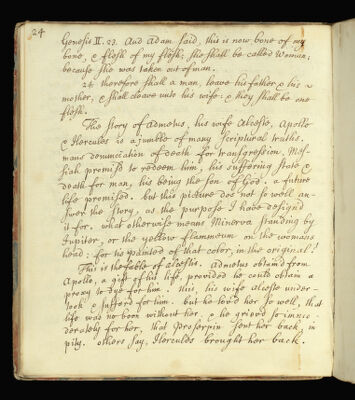 24
Genesis II. 23. And Adam said, this is now bone of my
bone, & flesh of my flesh: she shall be called Woman;
because she was taken out of man.
24 therefore shall a man, leave his father, & his
mother, & shall cleave unto his wife: & they shall be one
flesh.
This story of Admetus, his wife Alceste, Apollo
& Hercules is a jumble of many scriptural truths.
mans denunciation of death for transgression, Mes-
siah promis'd to redeem him, his suffering state &
death for man, his being the son of God: a future
life promised. but this picture does not so well an-
swer the story, as the purpose I have design'd
it for. what otherwise means Minerva standing by
Jupiter, or the yellow flammeum on the womans
head: for tis painted of that color, in the original!
This is the fable of Alcestis. Admetus obtain'd from
Apollo, a gift of his life, provided he could obtain a
proxy to dye for him. this, his wife Alceste under-
took & suffer'd for him. but he lov'd her so well, that
life was no boon without her. & he griev'd so immo-
derately for her, that Proserpin sent her back, in
pity. others say, Hercules brought her back.